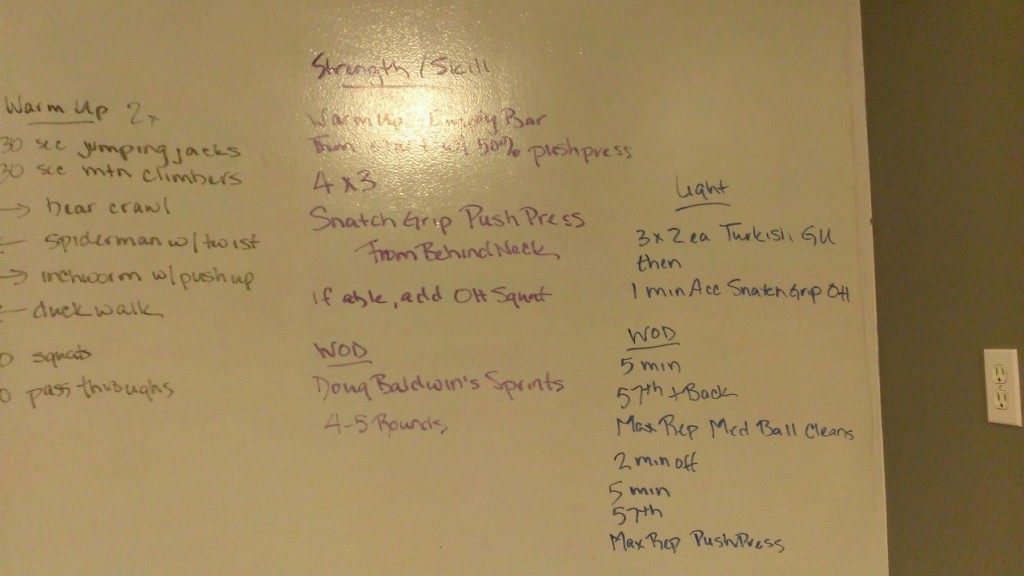 Warm Up 2x
30 sec jumping jacks
30 sec mtn climbers
→ bear crawl
← spiderman w/ twist
→ inchworm w/ push up
← duck walk
0 squats
0 pass throughs
Strength / Skill
Warm Up: Empty Bar
Then start w/ 50% push press
4 x 3
Snatch Grip Push Press
From Behind Neck
If able, add OH Squat
WOD
Doug Baldwin's Sprints
4-5 Rounds
Light
3 x 2 ea Turkish GU
then
1 min Acc Snatch Grip OH
WOD
5 min
57th + Back
Max Rep Med Ball Cleans
2 min off
5 min
57th
Max Rep Push Press